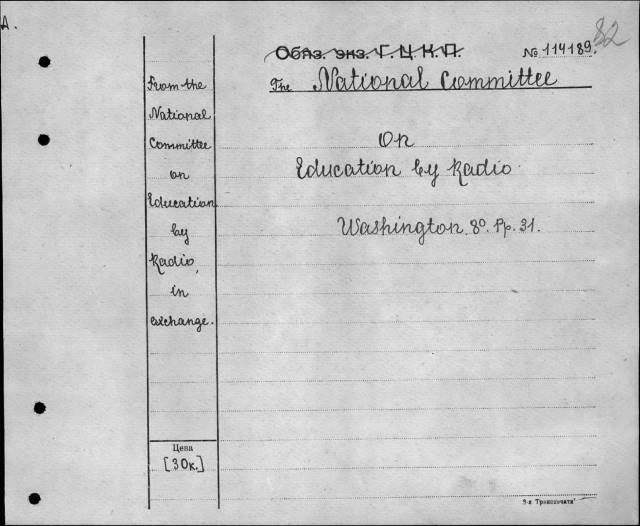 A.
82
Обяз. экз. Г. Ц. К. П.
№ 114189.
The National Committee
On
Education by Radio
Washington. 8º. Pp. 31.
From the
National
Committee
on
Education
by
Radio,
in
exchange.
Цена
[30к.]
9-я Транспечати